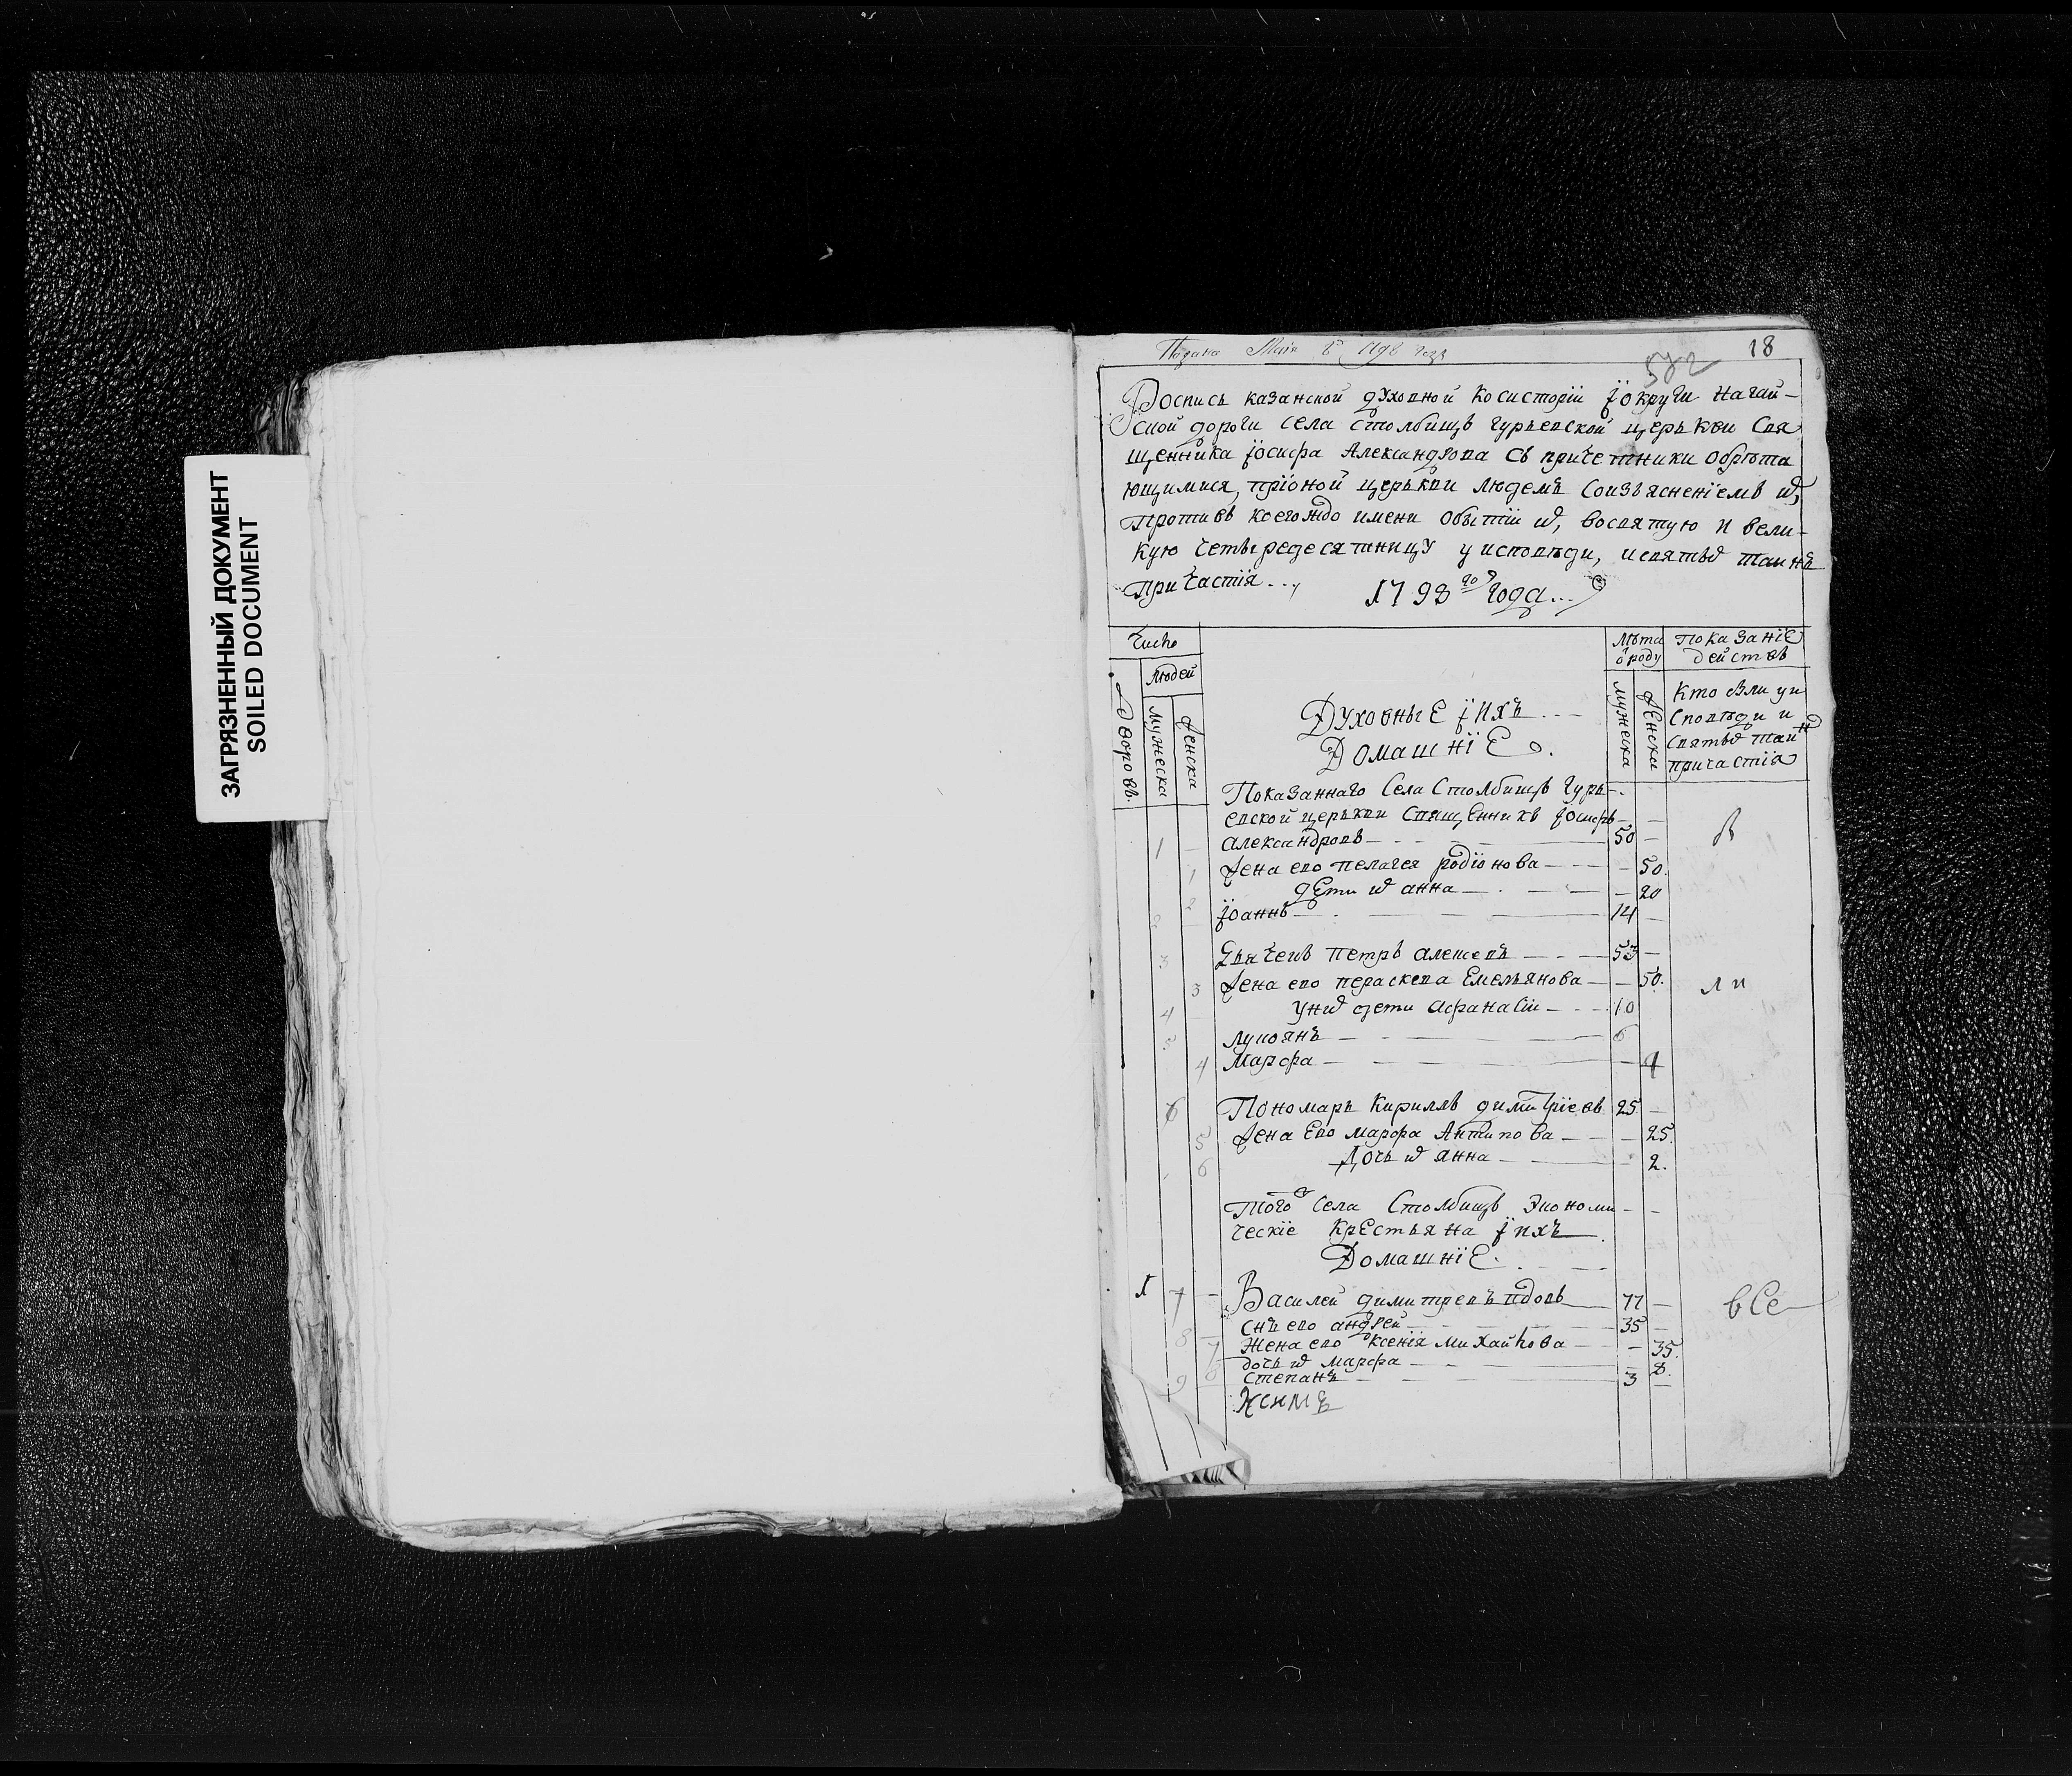 ЗАГРЯЗНЕННЫЙ ДОКУМЕНТ
SOILED DOCUMENT
Подана Маiя года
18
582
Роспись казанской духовной косисторїи їокруги Нагай-
ской дороги села Столбищъ Гурьевской церькви Свя
щенника їосифа Александрова съ причетники обрѣта
ющимися, прїоной церькви людемъ соизъясненїемъ ихъ
противъ коегождо имени обытїи ихъ, восвятую и вели-
кую четыредесятницу у исповѣди, исвятыхъ таинъ
причастїя..,
1798 го года...
Число
Людей
дворовъ.
мужеска
женска
Духовные їихъ
Домашнїе.
Лѣта
ѿроду
мужеска
женска
показанїе
действъ
Кто были уи
сповѣди и
святыхъ таинъ
причастїя
Показаннаго Села Столбищъ Гурь-
евской церькви священникъ їосифъ
1 александровъ 50
1 жена ево пелагея родїонова 50.
2 дети ихъ анна 20
2 їоаннъ 14
3 Дьячекъ Петръ алексеевъ 53
3 жена ево пераскева Емельянова 50.
ли
4 унихъ дети афанасїи 10
5 лукоянъ 6
4 Марфа 4
6 Пономарь Кирилъ димитрїевъ 25
5 жена Ево марфа Антипова 25.
6 Дочь ихъ анна 2.
Того Села Столбищъ Экономи-
ческїе крестьяна їихъ
Домашнїе.
1 7 Василей димитревъ вдовъ 77
все
8 снъ ево андрей 35
7 Жена ево Ксенїя михайлова 35.
8 дочь ихъ марфа 8.
9 степанъ 3